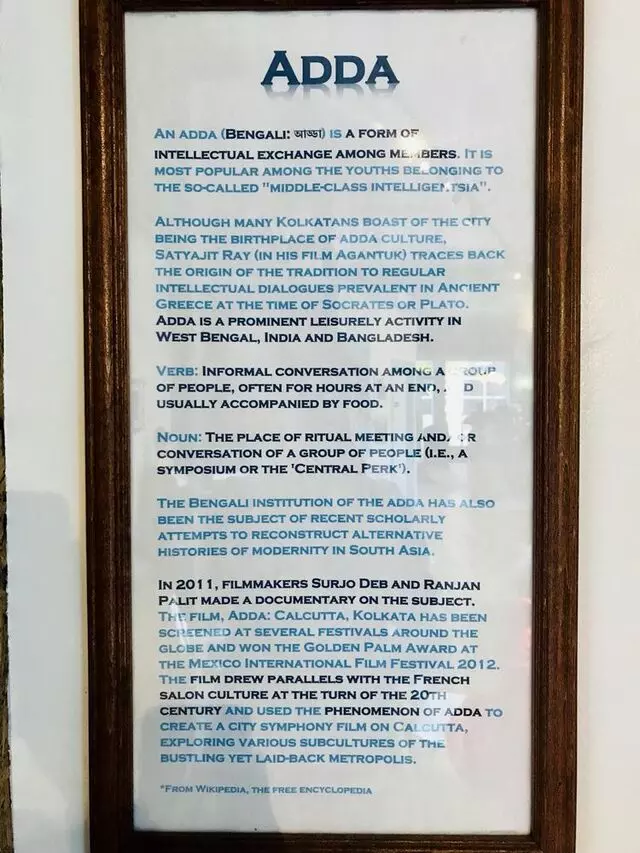 ADDA
AN ADDA (BENGALI: আড্ডা) IS A FORM OF
INTELLECTUAL EXCHANGE AMONG MEMBERS. IT IS
MOST POPULAR AMONG THE YOUTHS BELONGING TO
THE SO-CALLED "MIDDLE-CLASS INTELLIGENTSIA".
ALTHOUGH MANY KOLKATANS BOAST OF THE CITY
BEING THE BIRTHPLACE OF ADDA CULTURE,
SATYAJIT RAY (IN HIS FILM AGANTUK) TRACES BACK
THE ORIGIN OF THE TRADITION TO REGULAR
INTELLECTUAL DIALOGUES PREVALENT IN ANCIENT
GREECE AT THE TIME OF SOCRATES OR PLATO.
ADDA IS A PROMINENT LEISURELY ACTIVITY IN
WEST BENGAL, INDIA AND BANGLADESH.
VERB: INFORMAL CONVERSATION AMONG A GROUP
OF PEOPLE, OFTEN FOR HOURS AT AN END, AND
USUALLY ACCOMPANIED BY FOOD.
NOUN: THE PLACE OF RITUAL MEETING AND/OR
CONVERSATION OF A GROUP OF PEOPLE (I.E., A
SYMPOSIUM OR THE 'CENTRAL PERK').
THE BENGALI INSTITUTION OF THE ADDA HAS ALSO
BEEN THE SUBJECT OF RECENT SCHOLARLY
ATTEMPTS TO RECONSTRUCT ALTERNATIVE
HISTORIES OF MODERNITY IN SOUTH ASIA.
IN 2011, FILMMAKERS SURJO DEB AND RANJAN
PALIT MADE A DOCUMENTARY ON THE SUBJECT.
THE FILM, ADDA: CALCUTTA, KOLKATA HAS BEEN
SCREENED AT SEVERAL FESTIVALS AROUND THE
GLOBE AND WON THE GOLDEN PALM AWARD AT
THE MEXICO INTERNATIONAL FILM FESTIVAL 2012.
THE FILM DREW PARALLELS WITH THE FRENCH
SALON CULTURE AT THE TURN OF THE 20TH
CENTURY AND USED THE PHENOMENON OF ADDA TO
CREATE A CITY SYMPHONY FILM ON CALCUTTA,
EXPLORING VARIOUS SUBCULTURES OF THE
BUSTLING YET LAID-BACK METROPOLIS.
*FROM WIKIPEDIA, THE FREE ENCYCLOPEDIA